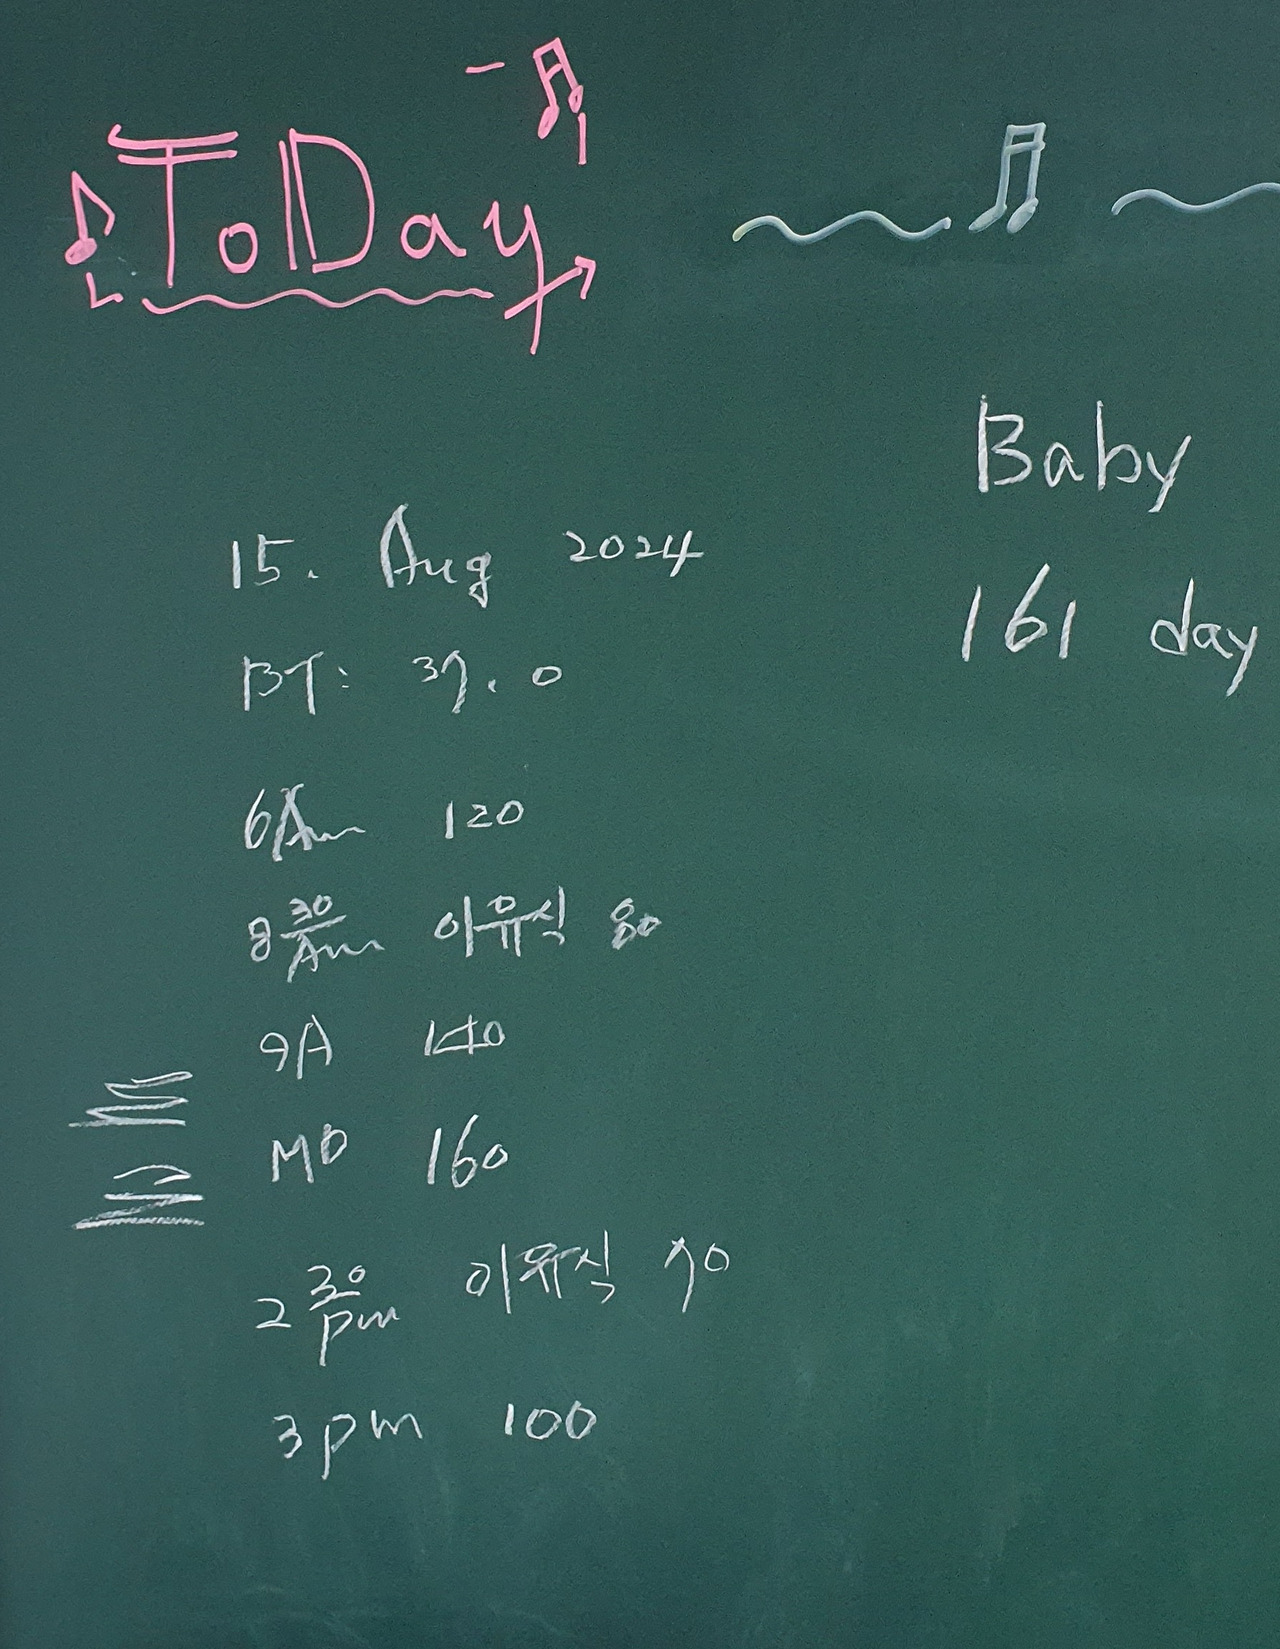 ToDay
Baby
161 day
15. Aug 2024
BT: 37.0
6Am 120
8 30/Am 이유식 80
9A 140
MD 160
2 30/pm 이유식 70
3pm 100